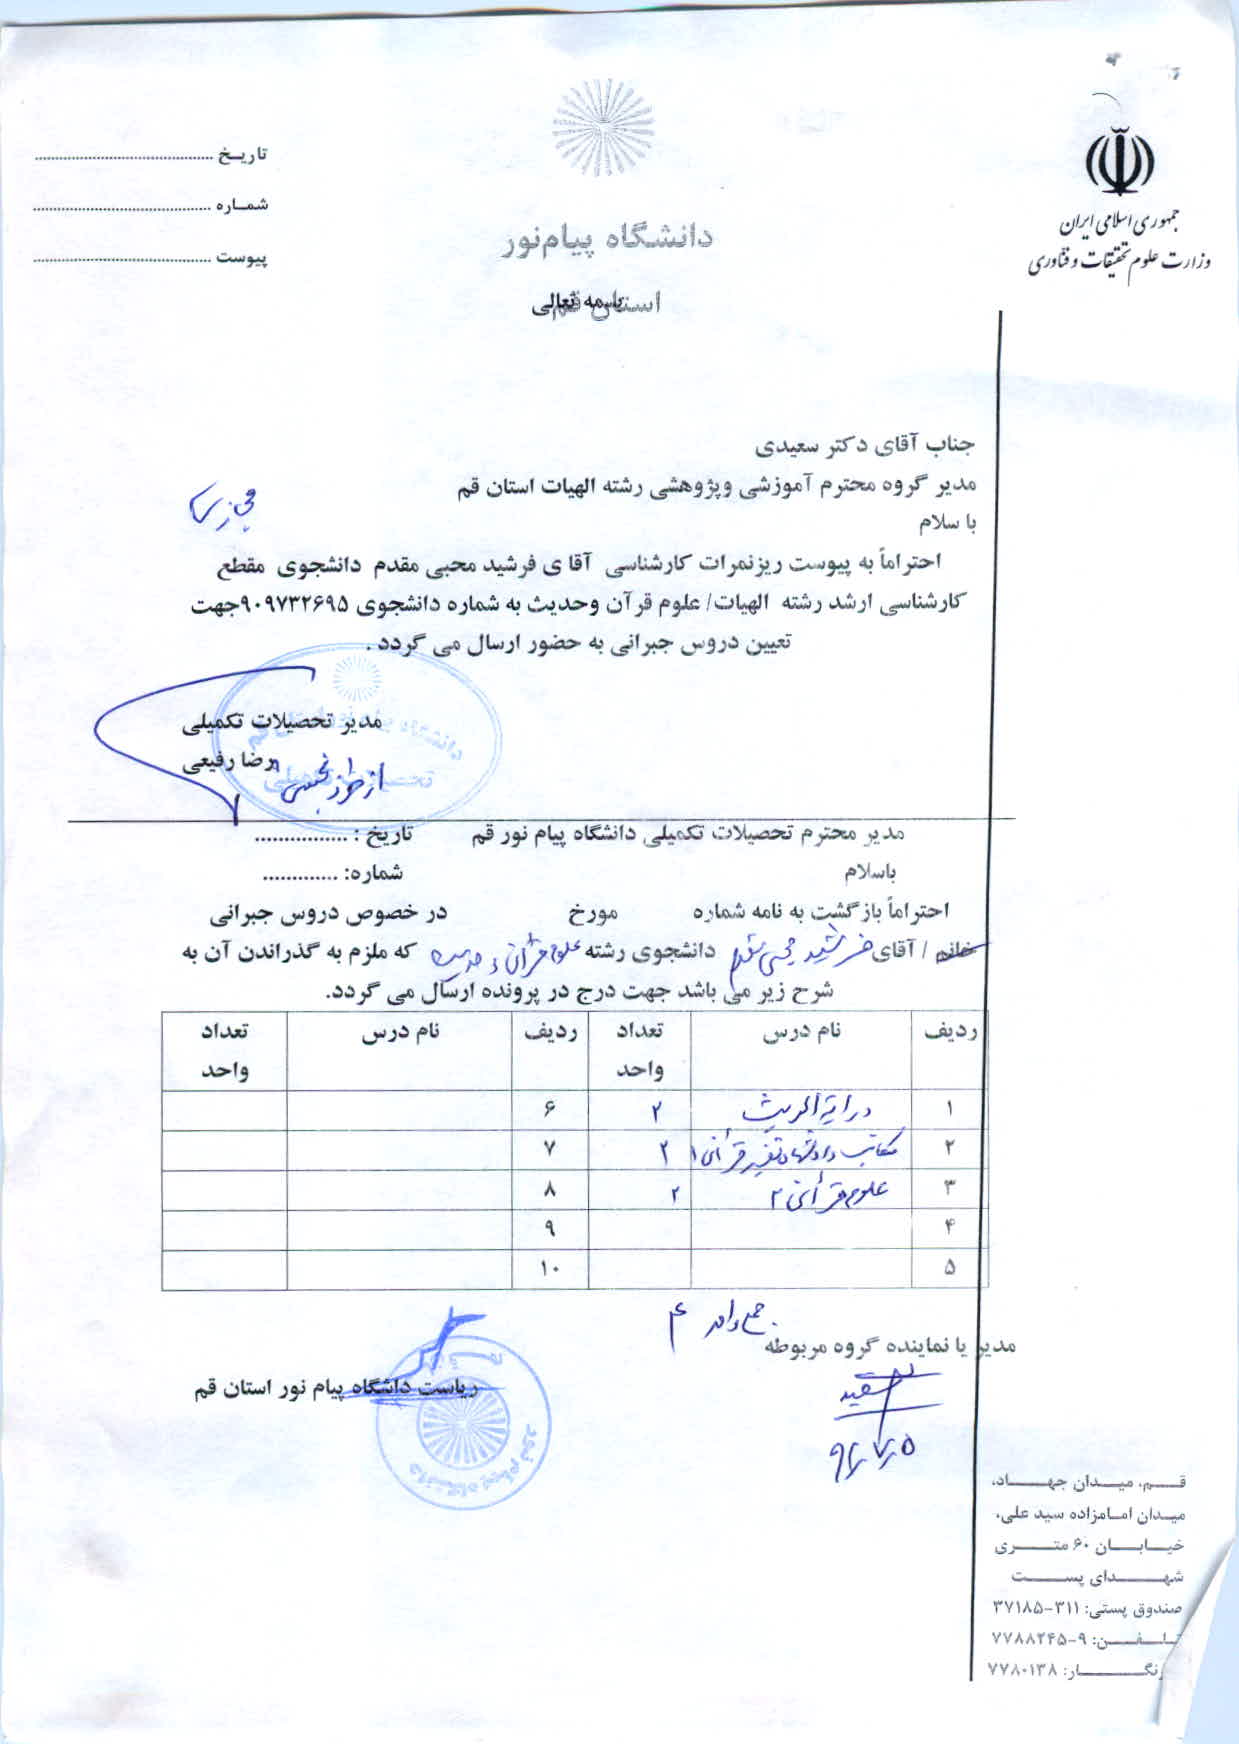 جمهوری اسلامی ایران
وزارت علوم تحقیقات و فناوری
دانشگاه پیام‌نور
استان قم
باسمه تعالی
تاریـخ ........................................
شمـاره ........................................
پیوست ........................................
جناب آقای دکتر سعیدی
مدیر گروه محترم آموزشی وپژوهشی رشته الهیات استان قم
با سلام
احتراماً به پیوست ریزنمرات کارشناسی آقا ی فرشید محبی مقدم دانشجوی مقطع
کارشناسی ارشد رشته الهیات/ علوم قرآن وحدیث به شماره دانشجوی ۹۰۹۷۳۲۶۹۵جهت
تعیین دروس جبرانی به حضور ارسال می گردد .
مدیر تحصیلات تکمیلی
رضا رفیعی
دانشگاه پیام نور استان قم
تحصیلات تکمیلی
مدیر محترم تحصیلات تکمیلی دانشگاه پیام نور قم تاریخ : ................
باسلام شماره: .............
احتراماً بازگشت به نامه شماره مورخ در خصوص دروس جبرانی
خانم / آقای فرشید محبی مقدم دانشجوی رشته علوم قرآن و حدیث که ملزم به گذراندن آن به
شرح زیر می باشد جهت درج در پرونده ارسال می گردد.
ردیف نام درس تعداد واحد ردیف نام درس تعداد واحد
۱ درایة الحدیث ۲ ۶
۲ مکاتب و روشهای تفسیر قرآنی ۱ ۲ ۷
۳ علوم قرآنی ۲ ۲ ۸
۴ ۹
۵ ۱۰
جمع واحد ۶
مدیر یا نماینده گروه مربوطه
ریاست دانشگاه پیام نور استان قم
دانشگاه پیام نور
قـــم، میـــدان جهـــاد،
میـدان امـامزاده سید علی،
خیـابـــان ۶۰ متـــری
شهـــدای پســـت
صندوق پستی: ۳۱۱-۳۷۱۸۵
تلـفـــن: ۹-۷۷۸۸۲۴۵
ـار: ۷۷۸۰۱۳۸